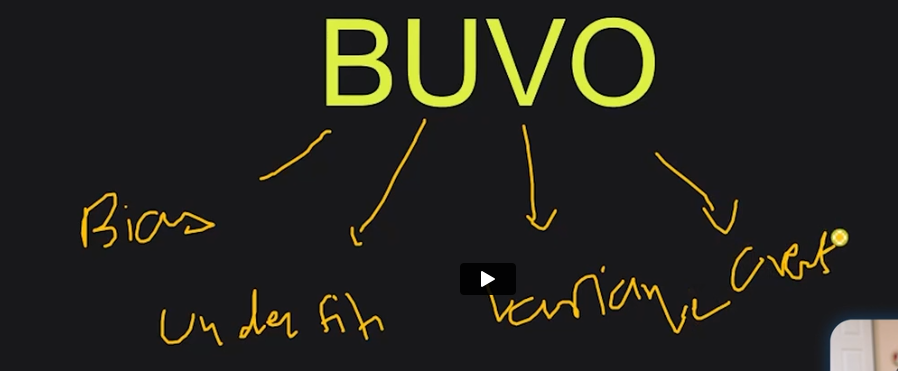 BUVO
Bias
Underfit
Varianc
Overf